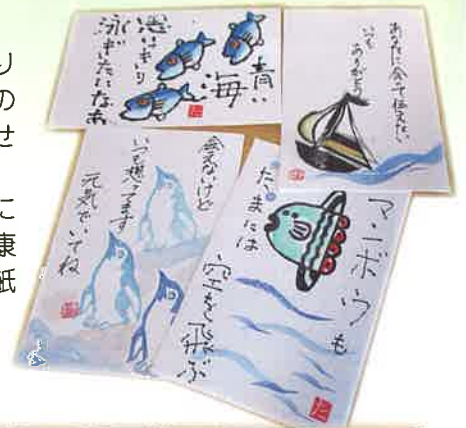 り
の
せ
に
康
紙
青い
海
思いきり
泳ぎたいなあ
あなたに会って伝えたい
いつも
ありがとう
会えないけど
いつも想ってます
元気でいてね
マンボウも
たまには
空を飛ぶ